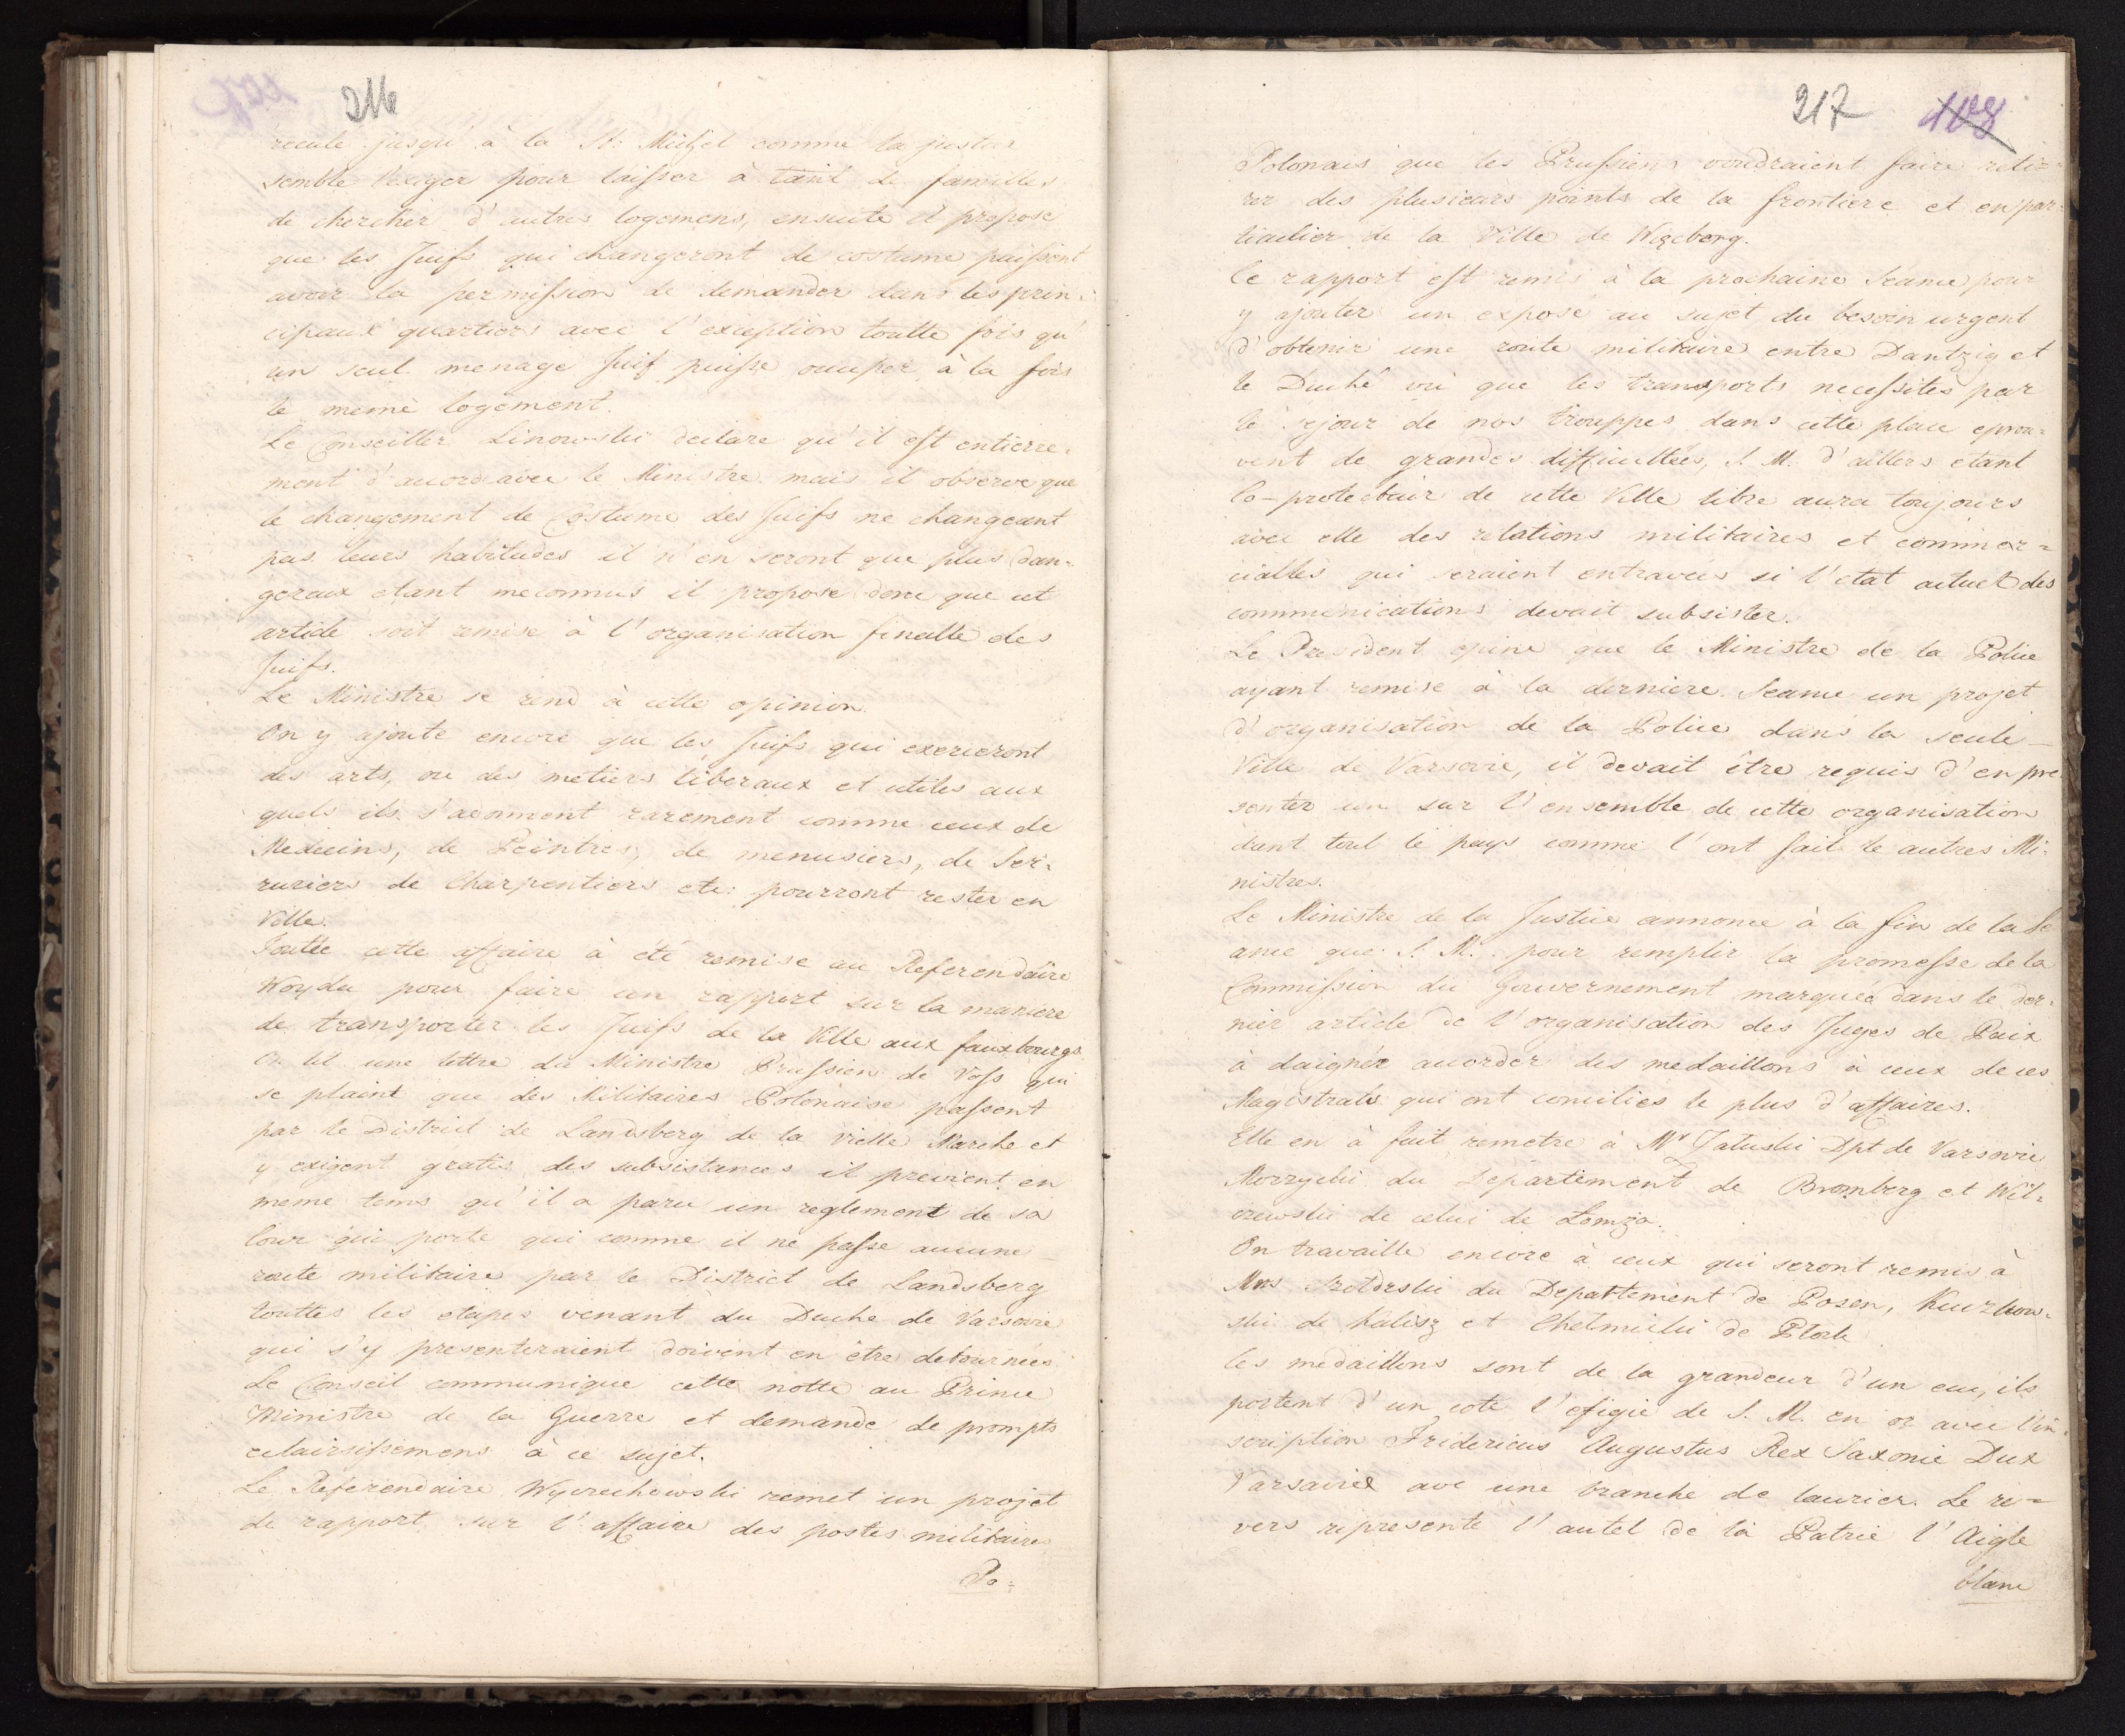 216
recule jusqu'à la St: Michel comme la justice
semble l'exiger pour laisser à tant de familles
de chercher d'autres logemens, ensuite il propose
que les Juifs qui changeront de costume puissent
avoir la permission de demander dans les prin-
cipaux quartiers avec l'exception toutte fois qu'
un seul menage Juif puisse occuper à la fois
le meme logement.
Le Conseiller Linowski declare qu'il est entiere-
ment d'accord avec le Ministre mais il observe que
le changement de Costume des Juifs ne changeant
pas leurs habitudes il n'en seront que plus dan-
gereux etant meconnus il propose donc que cet
article soit remise à l'organisation finalle des
Juifs.
Le Ministre se rend à cette opinion.
On y ajoute encore que les Juifs qui exerceront
des arts, ou des metiers liberaux et utiles aux
quels ils s'adonnent rarement comme ceux de
Medecins, de Peintres, de menusiers, de Ser-
ruriers de Charpentiers etc: pourront rester en
Ville.
Toutte cette affaire à eté remise au Referendaire
Woyda pour faire un rapport sur la maniere
de transporter les Juifs de la Ville aux fauxbourgs.
On lit une lettre du Ministre Prussien de Voss qui
se plaint que des Militaires Polonaise passent
par le District de Landsberg de la vielle Marche et
y exigent gratis des subsistances il previent en
meme tems qu'il a paru un reglement de sa
Cour qui porte qui comme il ne passe aucune
route militaire par le District de Landsberg
touttes les etapes venant du Duche de Varsovie
qui s'y presenteraient doivent en être detournées.
Le Conseil communique cette notte au Prince
Ministre de la Guerre et demande de prompts
eclairsissemens à ce sujet.
Le Referendaire Wyczechowski remet un projet
de rapport sur l'affaire des postes militaires
Po=
217 108
Polonais que les Prussiens voudraient faire reti=
rer des plusieurs points de la frontiere et en par=
ticulier de la Ville de
Ce rapport est remis à la prochaine Seance pour
y ajouter un exposé au sujet du besoin urgent
d'obtenir une route militaire entre Dantzig et
le Duché vu que les transports necessités par
le sejour de nos trouppes dans cette place eprou=
vent de grandes difficultées, S. M. d'aillers etant
Co-protecteur de cette Ville libre aura toujours
avec elle des relations militaires et commer=
cialles qui seraient entravées si l'etat actuel des
communications devait subsister.
Le President opine que le Ministre de la Police
ayant remise à la derniere Seance un projet
d'organisation de la Police dans la seule
Ville de Varsovie, il devait être requis d'en pre
senter un sur l'ensemble de cette organisation
dant tout le pays comme l'ont fait le autres Mi-
nistres.
Le Ministre de la Justice annonce à la fin de la Se
ance que S. M. pour remplir la promesse de la
Commission du Gouvernement marquée dans le der-
nier article de l'organisation des Juges de Paix
à daigner accorder des medaillons à ceux de ces
Magistrats qui ont conciliés le plus d'affaires.
Elle en à fait remetre à Mr Jatuski Dpt de Varsovie
Morzycki du Departement de Bromberg et Wil-
czewski de celui de Lomza.
On travaille encore à ceux qui seront remis à
Mrs du Departement de Posen, Kurzkow-
ski de Kalisz et Chelmicki de Plock
les medaillons sont de la grandeur d'un ecu, ils
portent d'un coté l'efigie de S. M. en or avec l'in
scription Fridericus Augustus Rex Saxonie Dux
Varsaviæ ave une branche de laurier. Le re=
vers represente l'autel de la Patrie l'Aigle
blanc